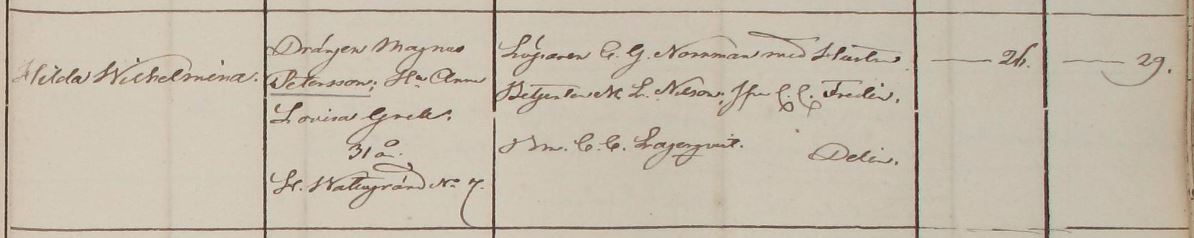 Hilda Wilhelmina.
Drängen Magnus
Petersson; H. Anna
Lovisa Grell.
31 å.
St. Wattugränd No 7.
Löparen C. G. Norrman med Hustru
Betjenten M. L. Nilson; Jfr C. C. Fredin.
Bm. C. C. Lagerqvist. Delin.
26.
29.